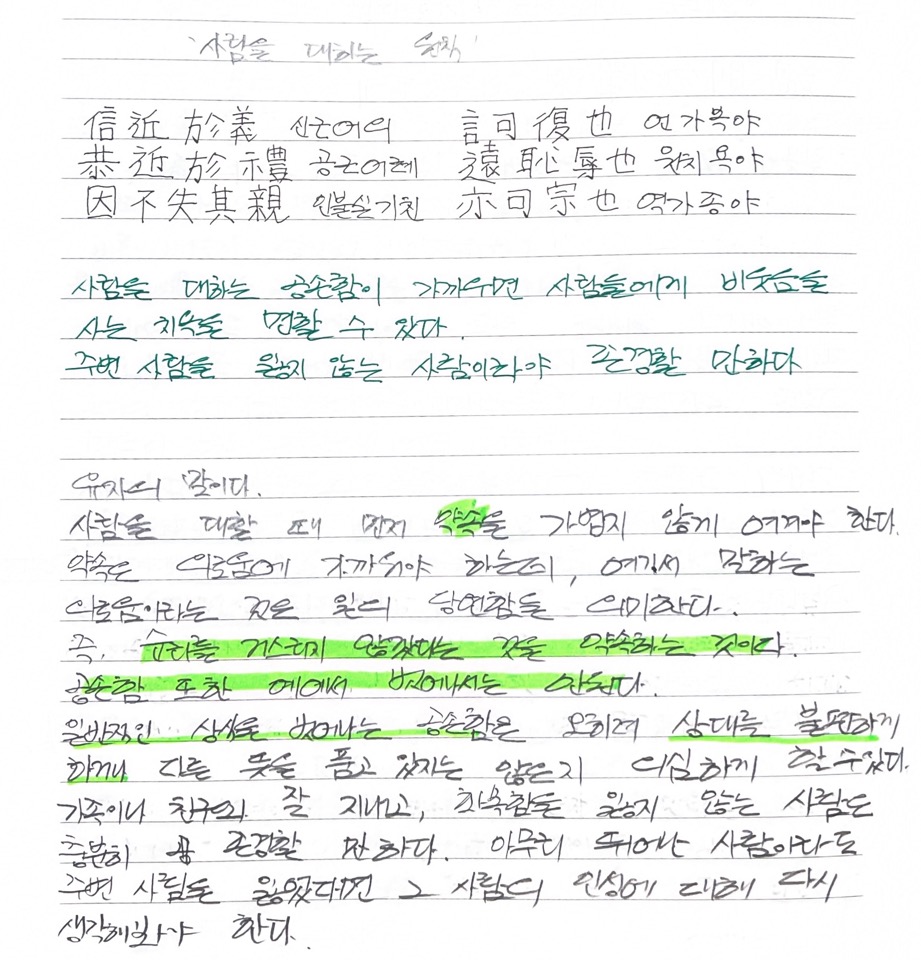 '사람을 대하는 원칙'
信近於義 신근어의 言可復也 언가복야
恭近於禮 공근어례 遠恥辱也 원치욕야
因不失其親 인불실기친 亦可宗也 역가종야
사람을 대하는 공손함이 가까우면 사람들에게 비웃음을
사는 치욕을 면할 수 있다.
주변 사람을 잃지 않는 사람이라야 존경할 만하다
유자의 말이다.
사람을 대할 때 먼저 약속을 가볍지 않게 여겨야 한다.
약속은 의로움에 가까워야 하는데, 여기서 말하는
의로움이라는 것은 일의 당연함을 의미한다.
즉, 순리를 거스르지 않겠다는 것을 약속하는 것이다.
공손함 또한 예에서 벗어나서는 안된다.
일반적인 상식을 벗어나는 공손함은 오히려 상대를 불편하게
하거나 다른 뜻을 품고 있지는 않은지 의심하게 할 수 있다.
가족이나 친구와 잘 지내고, 화목함을 잃지 않는 사람도
충분히 존경할 만하다. 아무리 뛰어난 사람이라도
주변 사람을 잃었다면 그 사람의 인성에 대해 다시
생각해봐야 한다.